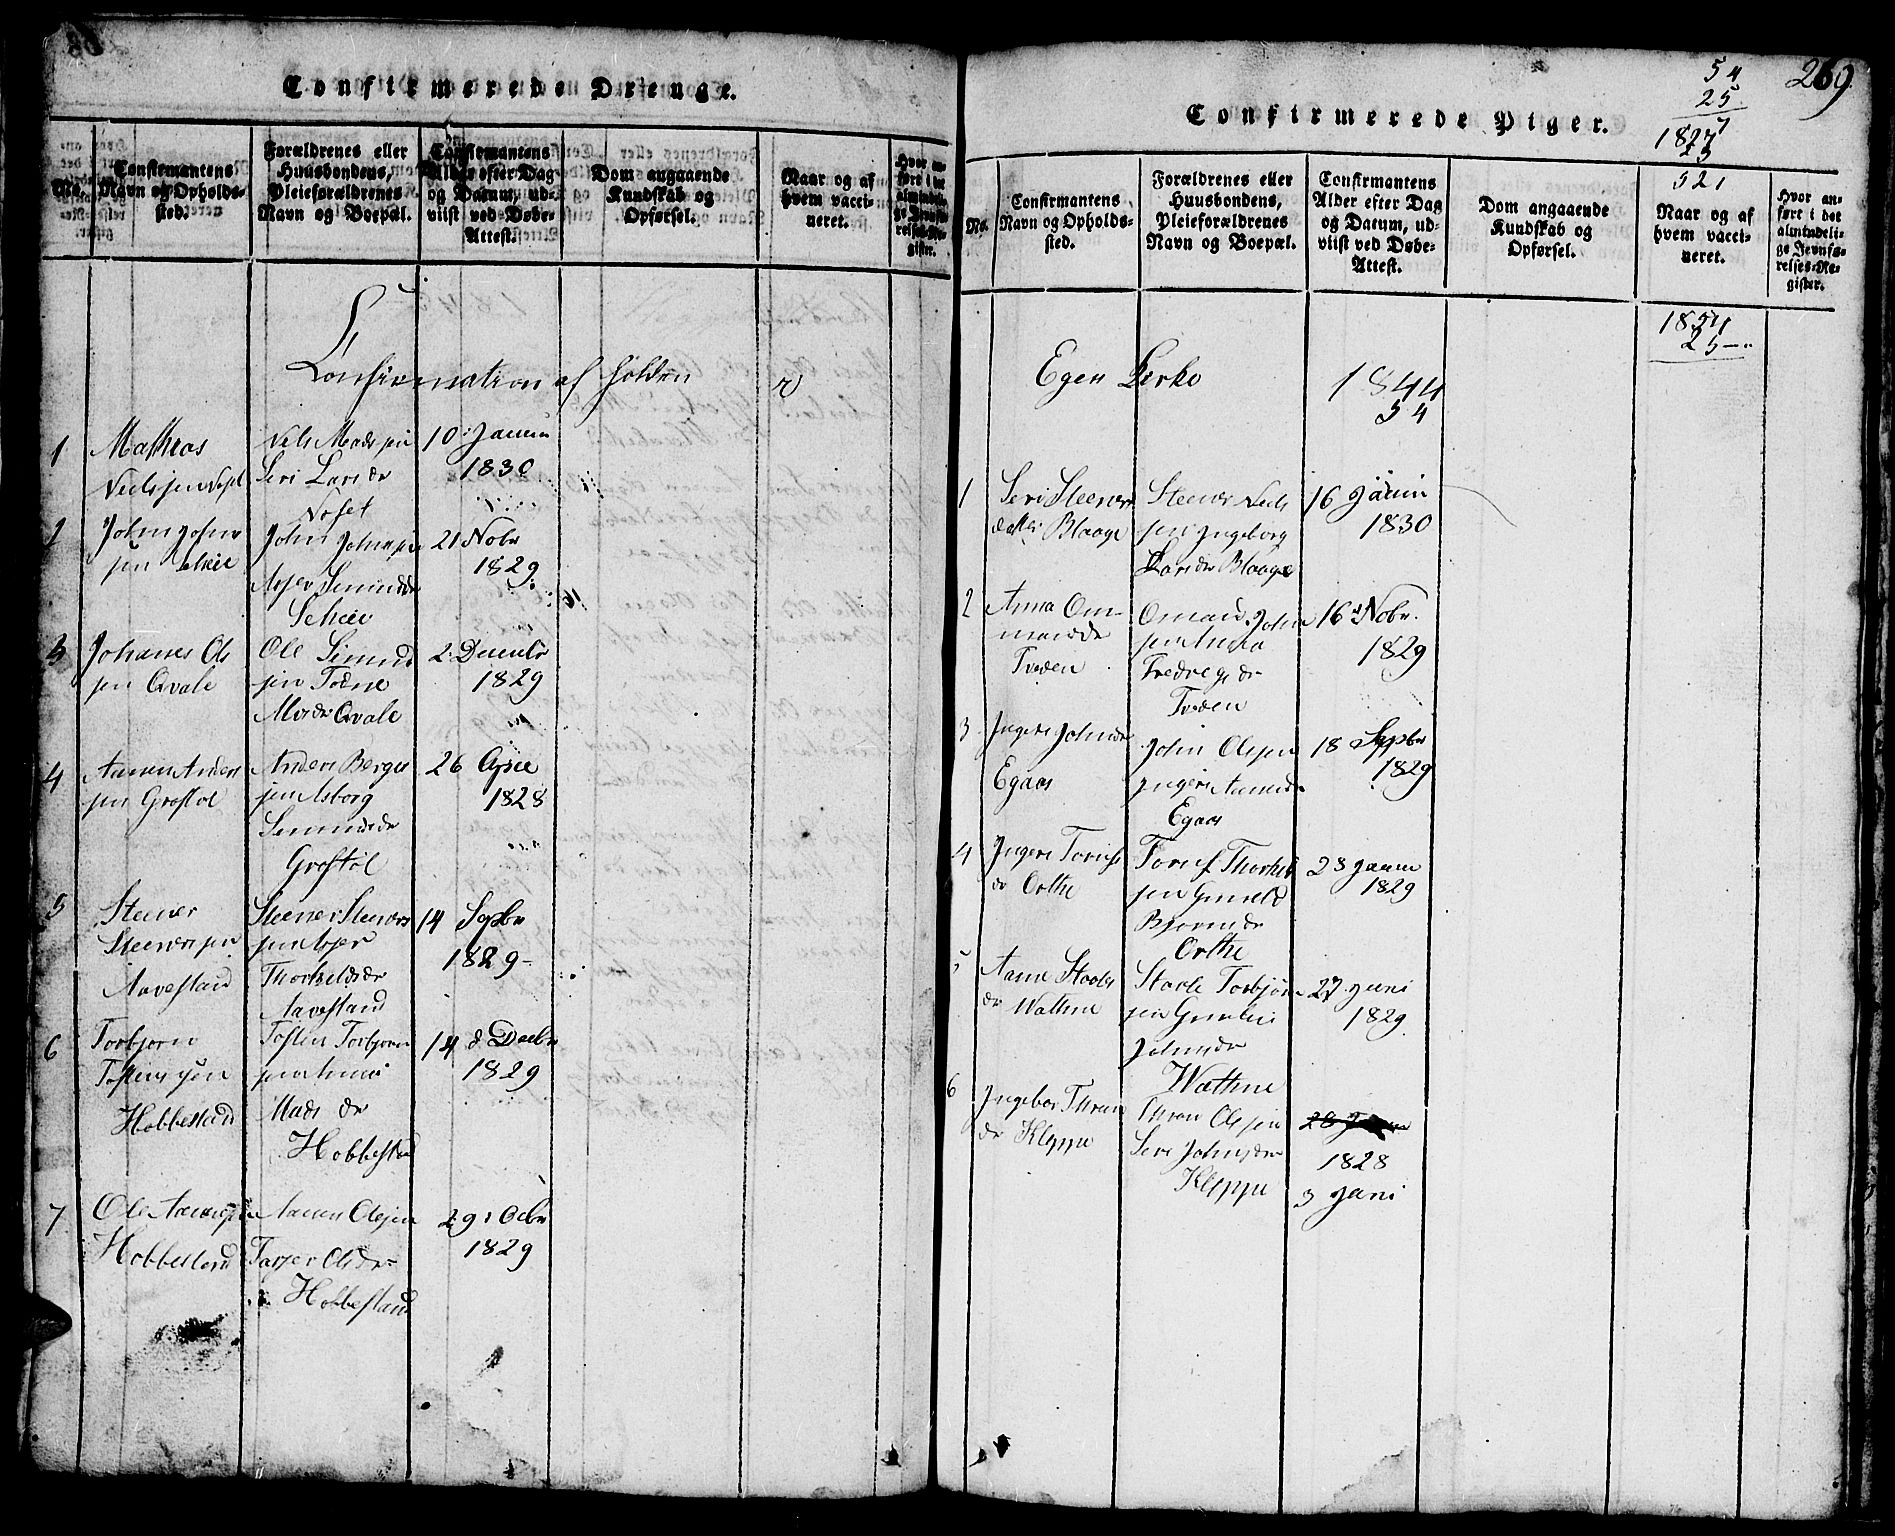 Confirmerede Drenge.
No.
Confirmantens
Navn og Opholds-
sted.
Forældrenes eller
Huusbondens,
Pleieforældrenes
Navn og Boepæl.
Confirmantens
Alder efter Dag
og Datum, ud-
viist ved Døbe-
Attest.
Dom angaaende
Kundskab og
Opførsel.
Naar og af
hvem vacci-
neret.
Hvor an-
ført i det
almindeli-
ge Jevnfø-
relses-Re-
gister.
Confirmation af holden
1 Mathias
Nels Madssen
10 Januar
1830
Seri Larsdr
2 John Johns
sen Scheie
John Johnssen
Scheie
21 Nobr
1829
3 Johanes Ols
sen Qvale
Ole Simnd
sen Torine
Qvale
2 Decembr
1829
4 Aanen Anders
sen Grostøl
Anders Berges
sen Asborg
Grostøl
26
1828
5 Steener
Steenerssen
Aavestand
Steener Steeners
sen Asjer
Thorkeldsdr
Aavestand
14 Sepbr
1829
6 Torbjorn
Tostenssen
Hobbestand
Tosten Torbjorn
sen
Mads dr
Hobbestad
14 d Decbr
1829
7 Ole Aanenssen
Hobbestand
Aanen Olssen
Tarjer Olsdr
Hobbestand
29 Ocbr
1829
269
54
25
1827
25
521
Confirmerede Piger.
No.
Confirmantens
Navn og Opholds-
sted.
Forældrenes eller
Huusbondens,
Pleieforældrenes
Navn og Boepæl.
Confirmantens
Alder efter Dag
og Datum, ud-
viist ved Døbe-
Attest.
Dom angaaende
Kundskab og
Opførsel.
Naar og af
hvem vacci-
neret.
Hvor an-
ført i det
almindeli-
ge Jevnfø-
relses-Re-
gister.
25
Egen Kirke
1844
54
1 Seri Steeners
datter Blaage
Steener Nels
sen Ingeborg
Larsdr Blaage
16 Januar
1830
2 Anna Om-
mundsdr
Tveden
Omand John
sen Anna
Fredregsdr
Tveden
16 d Nobr.
1829
3 Ingers Johnsdr
Egaas
John Olssen
Ingers
Egaas
18 Sepbr
1829
4 Ingers Torius
dr Orthe
Thorkels
sen Gunild
Bjornsdr
Orthe
23 Januar
1829
5 Aasne Staals
dr Wathne
Staale Torbjørn
sen
Johnsdr
Wathne
27 Juni
1829
6 Ingebor Thron
dr Kleppe
Thron Olssen
Seri Johnsdr
Kleppe
28
1828
3 Juni